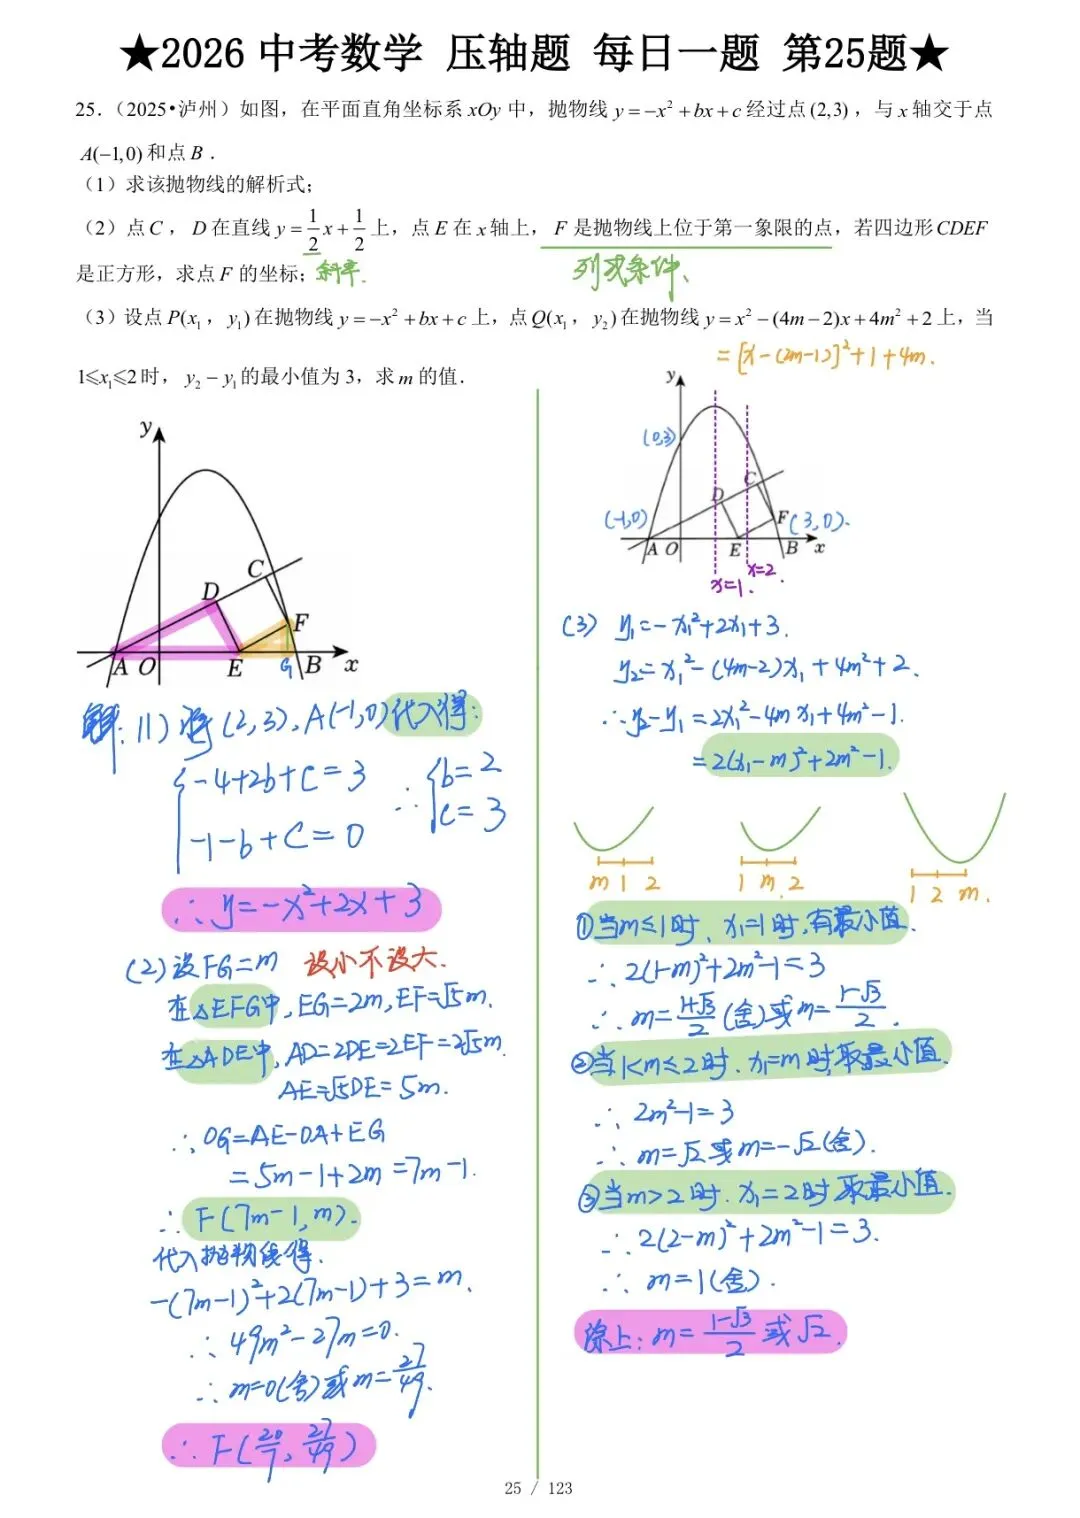 ★2026 中考数学 压轴题 每日一题 第25题★
25.（2025•泸州）如图，在平面直角坐标系 xOy 中，抛物线 y = -x² + bx + c 经过点 (2,3)，与 x 轴交于点
A(-1,0) 和点 B．
（1）求该抛物线的解析式；
（2）点 C，D 在直线 y = 1/2 x + 1/2 上，点 E 在 x 轴上，F 是抛物线上位于第一象限的点，若四边形 CDEF
是正方形，求点 F 的坐标；
斜率.
列式条件、
（3）设点 P(x₁，y₁) 在抛物线 y = -x² + bx + c 上，点 Q(x₁，y₂) 在抛物线 y = x² - (4m-2)x + 4m² + 2 上，当
= [x-(2m-1)]²+1+4m.
1≤x₁≤2 时，y₂ - y₁ 的最小值为 3，求 m 的值．
y
C
D
F
A O E G B x
解: (1) 将(2,3), A(-1,0)代入得:
{-4+2b+c=3
-1-b+c=0
∴ {b=2
c=3
∴ y=-x²+2x+3
(2) 设FG=m 设小不设大.
在△EFG中, EG=2m, EF=√5m.
在△ADE中, AD=2DE=2EF=2√5m.
AE=√5DE=5m.
∴ OG=AE-OA+EG
=5m-1+2m=7m-1.
∴ F(7m-1, m).
代入抛物线得.
-(7m-1)²+2(7m-1)+3=m.
∴ 49m²-27m=0.
∴ m=0(舍)或m=27/49.
∴ F(20/7, 27/49)
y
(0,3)
C
D
(-1,0)
F (3,0).
A O E B x
x=1. x=2.
(3) y₁=-x₁²+2x₁+3.
y₂=x₁²-(4m-2)x₁+4m²+2.
∴ y₂-y₁=2x₁²-4mx₁+4m²-1.
=2(x₁-m)²+2m²-1.
m 1 2
1 m 2
1 2 m.
①当m≤1时、x₁=1时,有最小值.
∴ 2(1-m)²+2m²-1=3
∴ m=1+√3/2(舍)或m=1-√3/2.
②当1<m≤2时.x₁=m时,取最小值.
∴ 2m²-1=3
∴ m=√2或m=-√2(舍).
③当m>2时.x₁=2时取最小值.
∴ 2(2-m)²+2m²-1=3.
∴ m=1(舍).
综上: m=1-√3/2或√2.
25 / 123